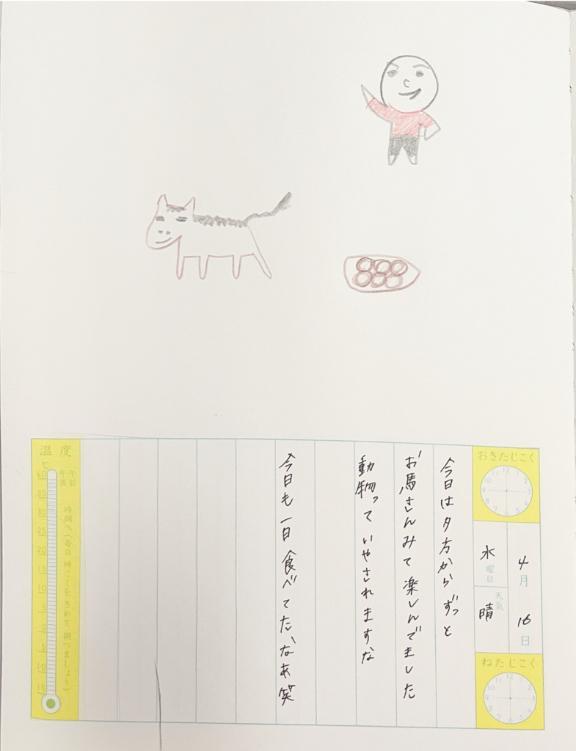 おきたじこく
4月16日
水曜日
天気 晴
ねたじこく
今日は夕方からずっと
お馬さんみて楽しんでました
動物っていやされますな
今日も一日食べてたなあ笑
温度
午前
午後